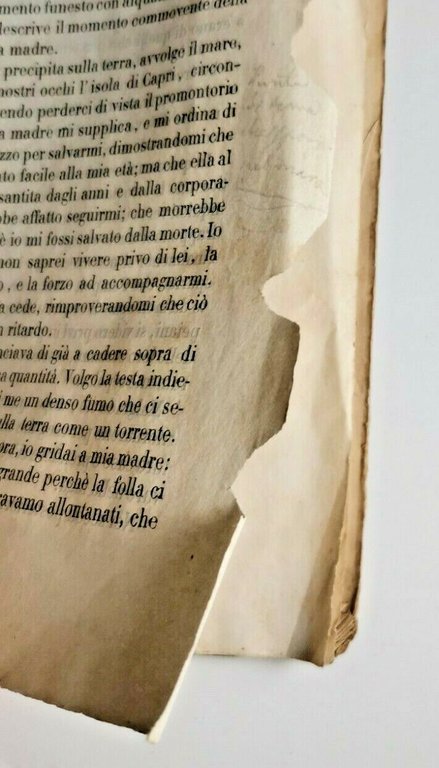 mento funesto con
descrive il momento commovente della
a madre.
precipita sulla terra, avvolge il mare,
nostri occhi l'isola di Capri, circon-
endo perderci di vista il promontorio
a madre mi supplica, e mi ordina di
zzo per salvarmi, dimostrandomi che
to facile alla mia età; ma che ella al
santita dagli anni e dalla corpora-
bbe affatto seguirmi; che morrebbe
è io mi fossi salvato dalla morte. Io
non saprei vivere privo di lei, la
o, e la forzo ad accompagnarmi.
a cede, rimproverandomi che ciò
n ritardo.
nciava di già a cadere sopra di
a quantità. Volgo la testa indie-
i me un denso fumo che ci se-
ulla terra come un torrente.
ora, io gridai a mia madre:
grande perchè la folla ci
ravamo allontanati, che